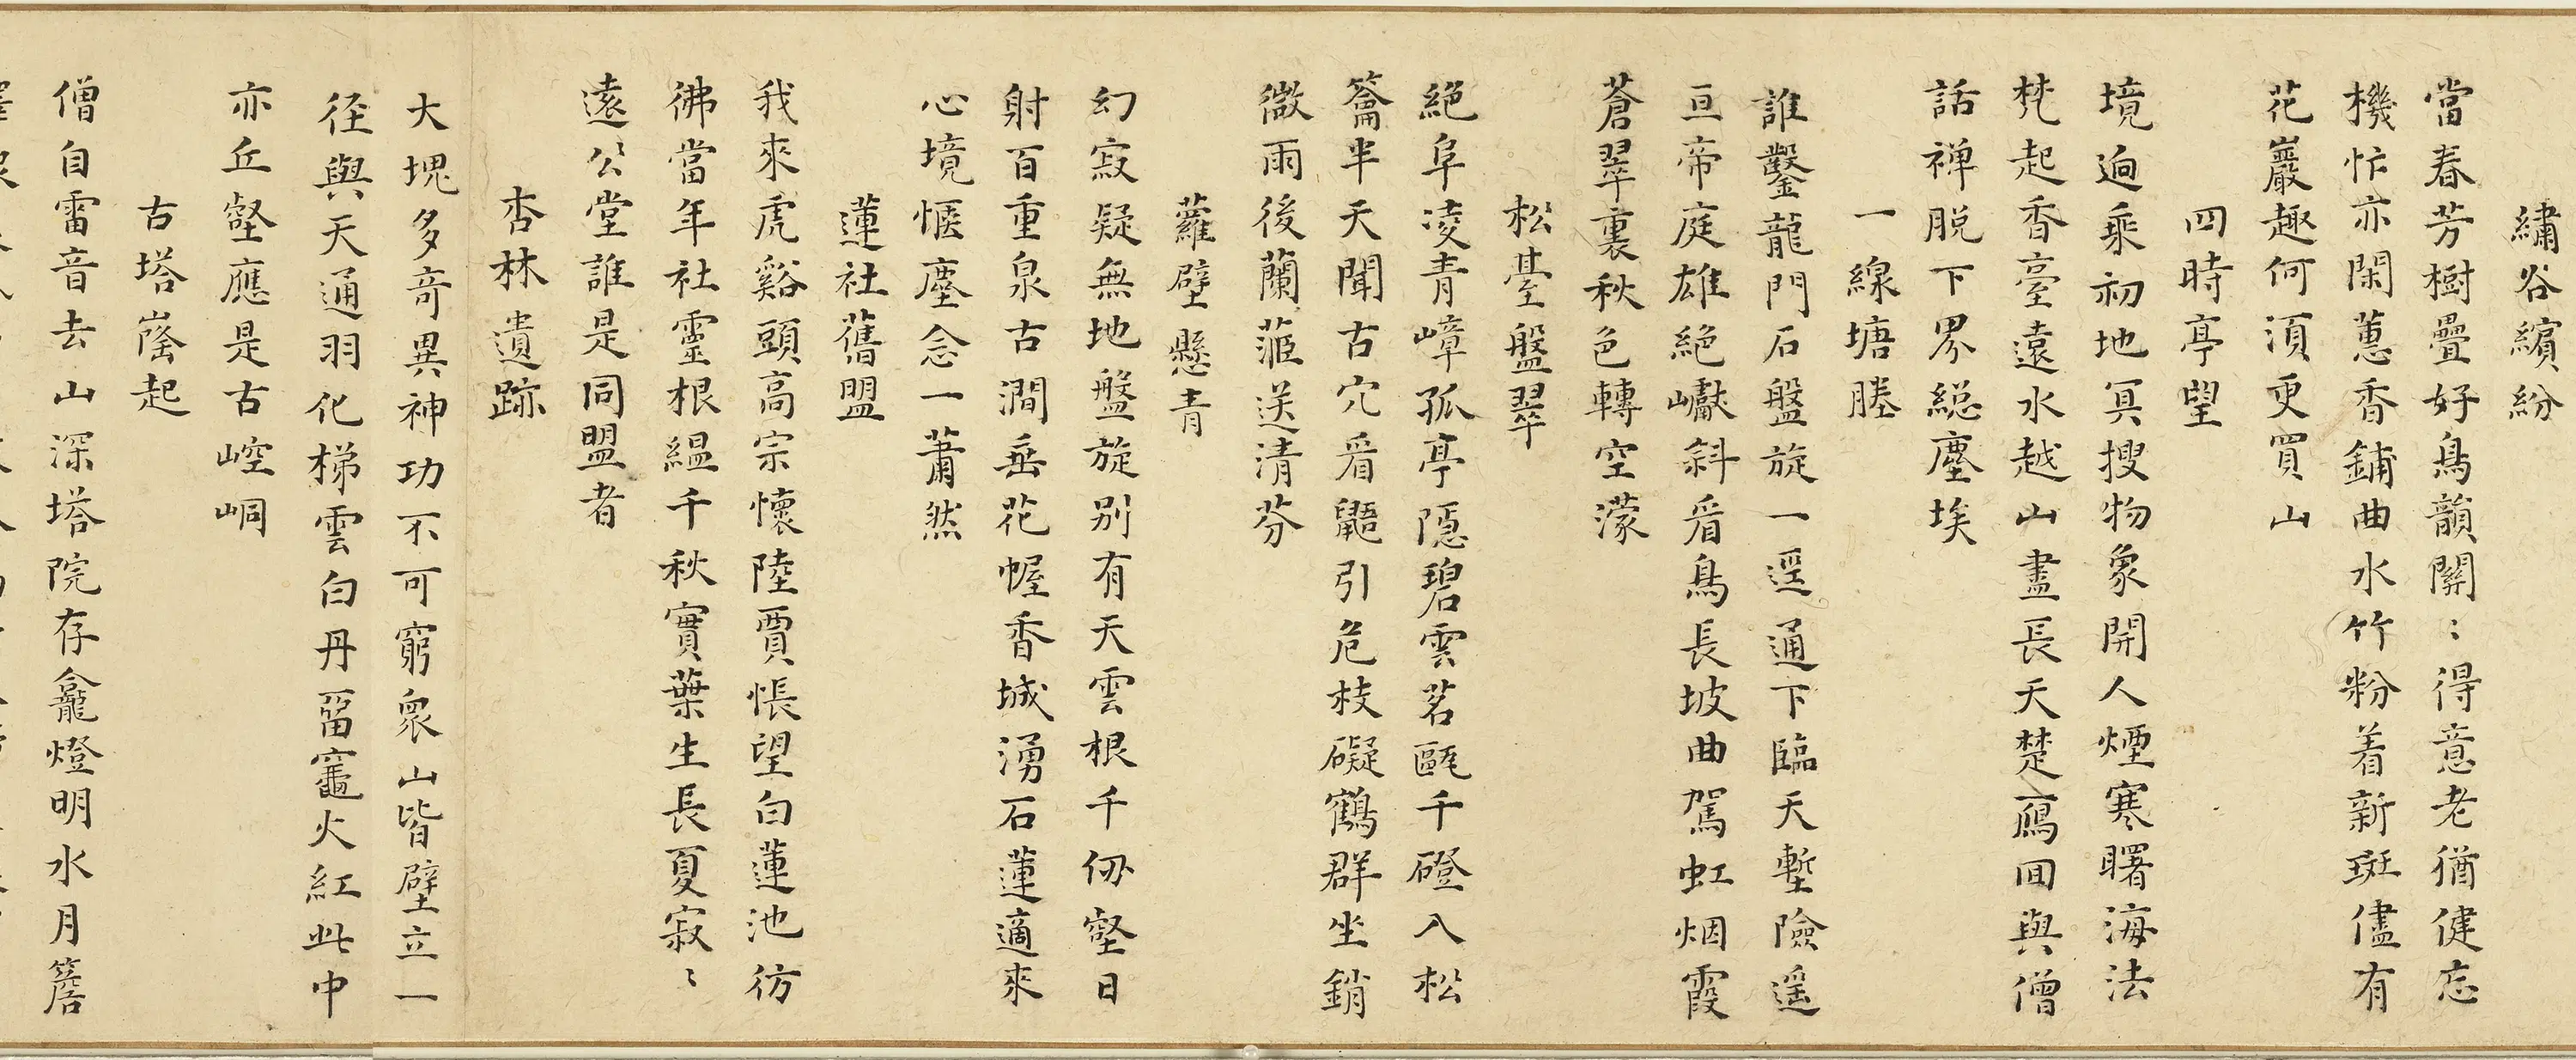 繡谷繽紛
當春芳樹疊好鳥韻關〻得意老猶健忘
機忙亦閑蕙香鋪曲水竹粉着新斑儘有
花巖趣何須更買山
四時亭望
境迥乘初地冥搜物象開人煙寒曙海法
梵起香臺遠水越山盡長天楚鴈回與僧
話禅脱下界総塵埃
一線塘塍
誰鑿龍門石盤旋一逕通下臨天塹險遥
亘帝庭雄絕巘斜看鳥長坡曲駕虹烟霞
蒼翠裏秋色轉空濛
松臺盤翠
絕阜凌青嶂孤亭隱碧雲茗甌千磴入松
籥半天聞古穴看鼯引危枝礙鶴群坐銷
微雨後蘭蒞送清芬
蘿壁懸青
幻寂疑無地盤旋别有天雲根千仞壑日
射百重泉古澗垂花幄香城湧石蓮適來
心境愜塵念一蕭然
蓮社舊盟
我來虎谿頭高宗懷陸賈悵望白蓮池彷
彿當年社靈根縕千秋實葉生長夏寂〻
遠公堂誰是同盟者
杏林遺跡
大塊多竒異神功不可窮衆山皆壁立一
径與天通羽化梯雲白丹畱竈火紅此中
亦丘壑應是古崆峒
古塔隆起
僧自雷音去山深塔院存龕燈明水月簷